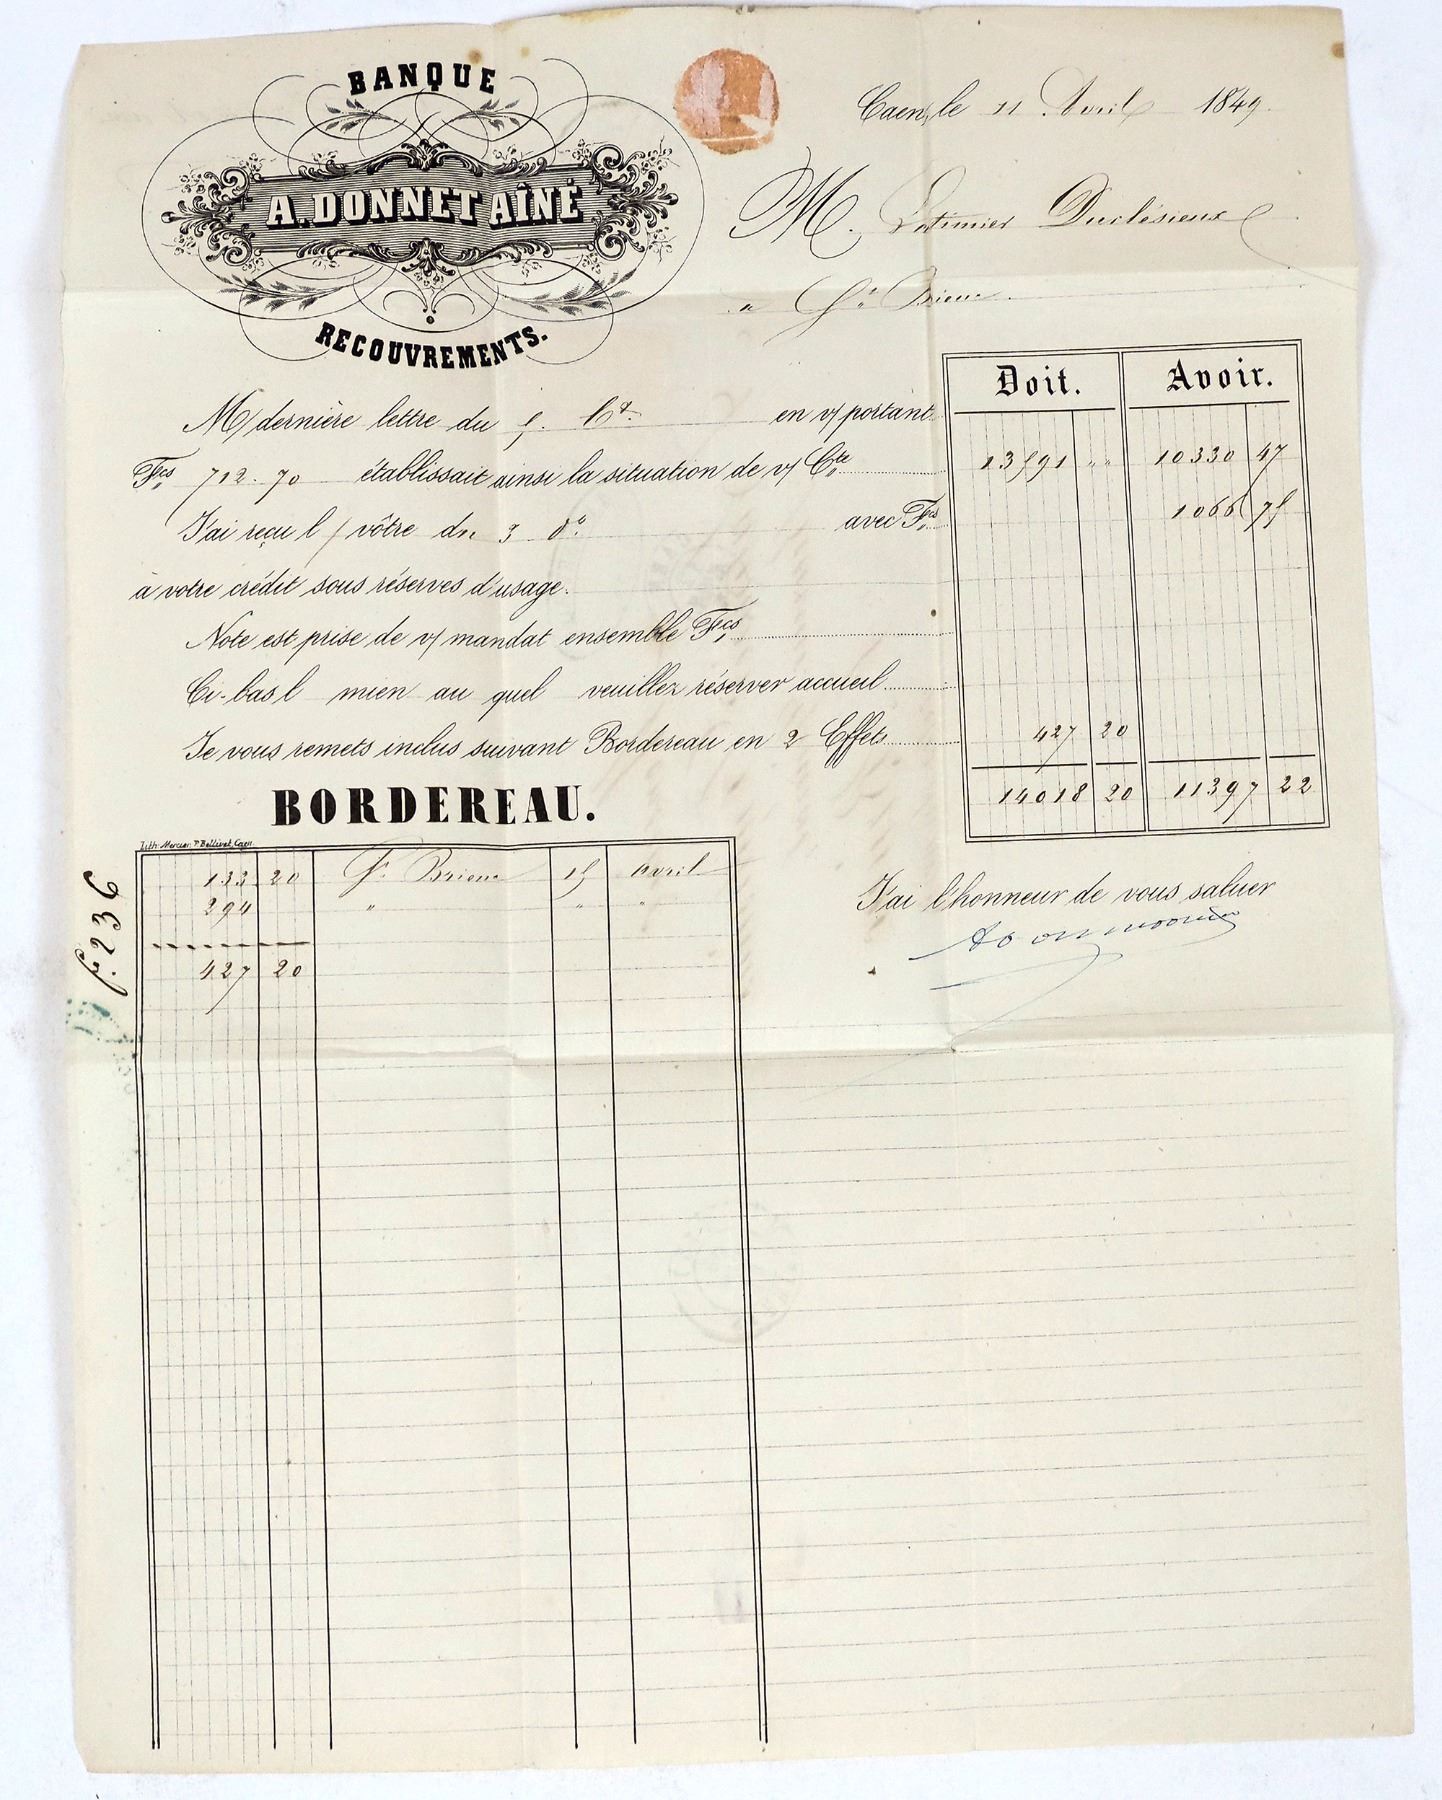 BANQUE
A. DONNET AÎNÉ
RECOUVREMENTS.
Caen, le 11 Avril 1849.
M. Latimier Duclésieux
a St Brieuc
Doit. Avoir.
M/ dernière lettre du 5. Ct. en v/ portant
Fcs 712. 70 établissait ainsi la situation de v/ Cte 13591 " " 10330 47
J'ai reçu l / vôtre du 3 do. avec Fcs 1066 75
à votre crédit sous réserves d'usage.
Note est prise de v/ mandat ensemble Fcs
Ci-bas l mien au quel veuillez réserver accueil
Je vous remets inclus suivant Bordereau en 2 Effets 427 20
14018 20 11397 22
BORDEREAU.
Lith. Mercier, Pce Bellivet, Caen.
133 20 St Brieuc 15 avril
294 " " "
427 20
f. 236
J'ai l'honneur de vous saluer